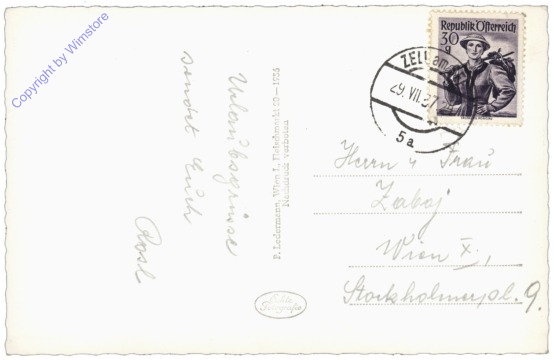 Copyright by Wimstore
Urlaubsgrüsse
sendet Euch
Rosl
P. Ledermann, Wien I., Fleischmarkt 20 — 1956
Nachdruck verboten
Echte
Fotografie
Republik Österreich
30
g
ZELL am
29. VII. 57
5a
Herrn u Frau
Zaboj
Wien X.,
Stockholmerpl. 9.